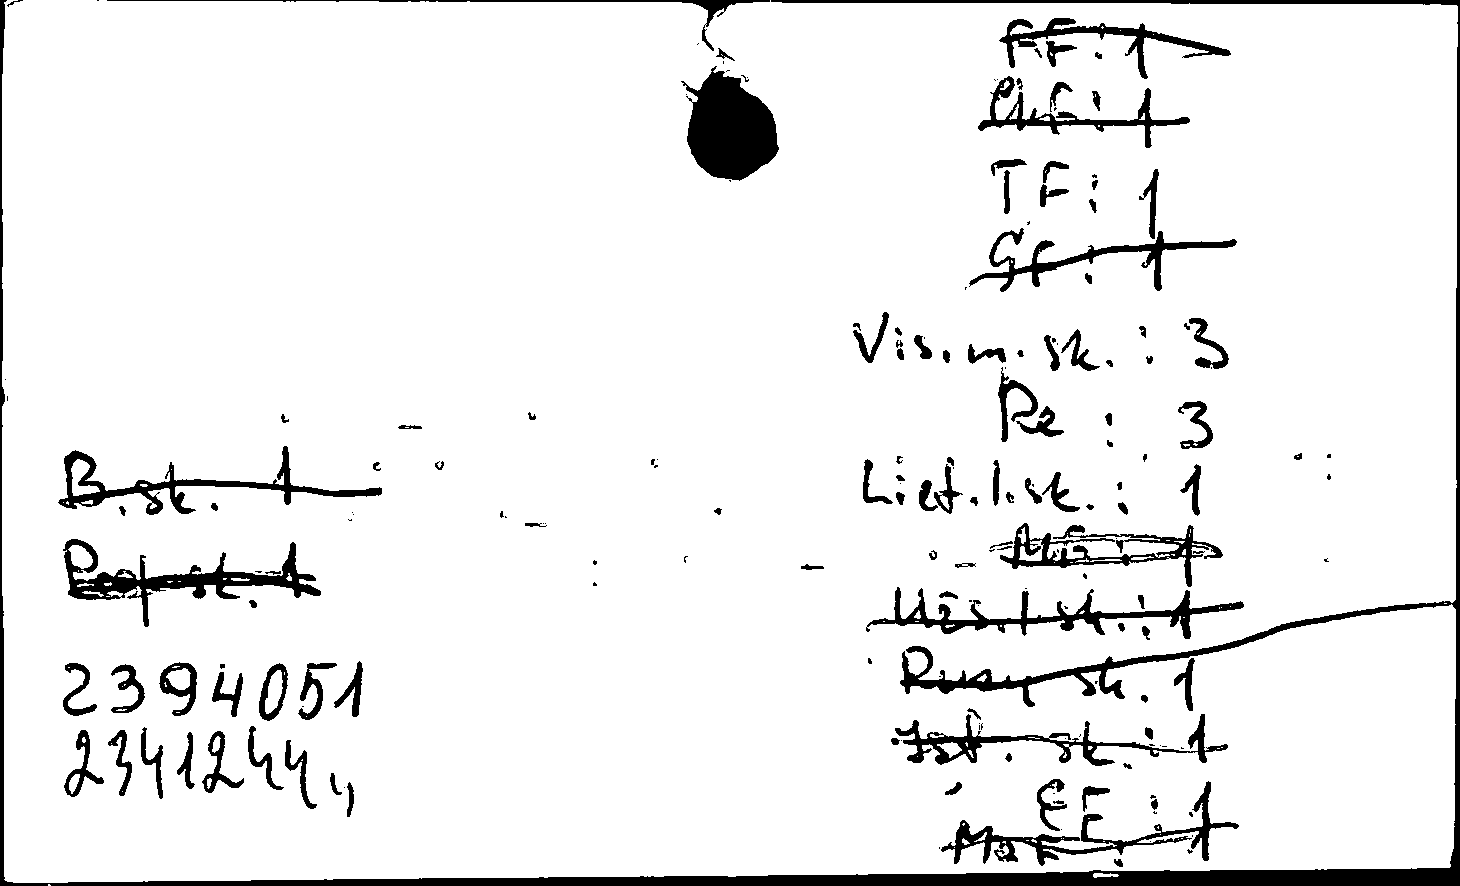 FF : 1
Ch.f : 1
TF : 1
GF : 1
Vis. m. sk. : 3
Re : 3
Liet. l. sk. : 1
MF : 1
Užs. l. sk. : 1
Rusų sk. 1
Ist. sk. : 1
EF : 1
MaF : 1
B. sk. 1
sk. 1
2394051
2341244,,